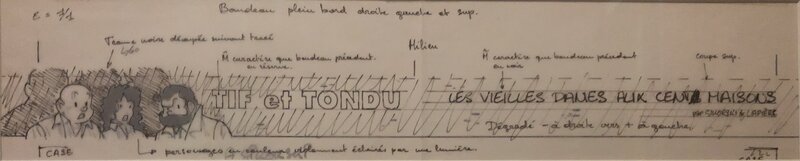 E = 1/1
Bandeau plein bord droite gauche et sup.
Trame noire découpée suivant tracé
M̂ caractère que bandeau précédent
en réserve.
Milieu
M̂ caractère que bandeau précédent
en noir
coupe sup.
TIF et TONDU
LES VIEILLES DAMES AUX CENT MAISONS
PAR SIKORSKI & LAPIÈRE
Dégradé - à droite vers + à gauche.
CASE
personnages en couleur violemment éclairés par une lumière.
CASE